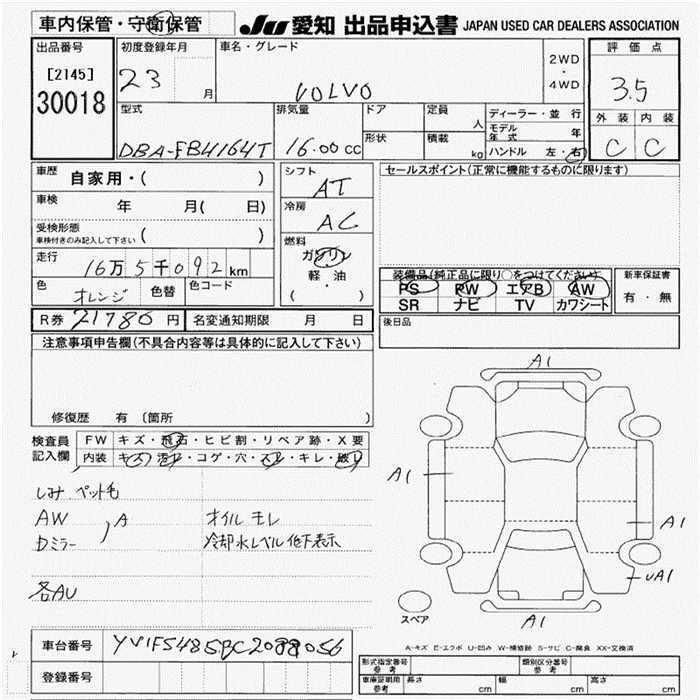 車内保管・守衛保管
JU 愛知 出品申込書 JAPAN USED CAR DEALERS ASSOCIATION
出品番号
[2145]
30018
初度登録年月
23 月
車名・グレード
VOLVO
2WD
・
4WD
評価点
3.5
外装 内装
C C
型式
DBA-FB4164T
排気量
16.00 cc
ドア
形状
定員 人
積載 kg
ディーラー・並行
モデル年式 年
ハンドル 左・右
車歴 自家用・( )
車検 年 月( 日)
受検形態
車検付きのみ記入して下さい ( )
走行 16万5千092km
色 オレンジ 色替 色コード
シフト
AT
冷房
AC
燃料
ガソリン
軽油
( ・ )
セールスポイント(正常に機能するものに限ります)
装備品(純正品に限り○をつけてください)
PS PW エアB AW
SR ナビ TV カワシート
新車保証書
有・無
後日品
R券 21780 円 名変通知期限 月 日
注意事項申告欄(不具合内容等は具体的に記入して下さい)
修復歴 有 〔箇所
検査員記入欄
FW キズ・飛石・ヒビ割・リペア跡・X要
内装 キズ・汚れ・コゲ・穴・スレ・キレ・破レ
しみ ペット毛
AW
Dミラー
) A
オイル モレ
冷却水レベル低下表示
各AU
A1
A1
A1
UA1
A1
スペア
A-キズ E-エクボ U-凹み W-補修跡 S-サビ C-腐食 XX-交換済
車台番号
登録番号
型式指定番号
参考
類別区分番号
参考
車庫証明用
参考
長さ cm 幅 cm 高さ cm